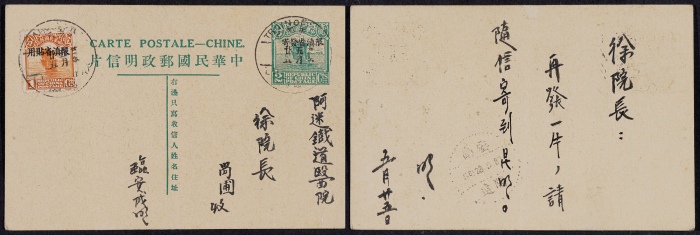 CARTE POSTALE—CHINE.
中華民國郵政明信片
限滇省貼用
1
限滇省發寄
2
右邊只寫收信人姓名住址
阿迷鐵道醫院
徐院長
收
臨安
徐院長：
再發一片，請
隨信寄到昆明。
五月廿五日